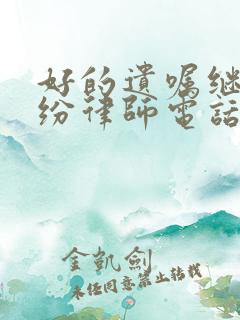 好的遺嘱继
纷律師電話
金凱劍
未经同意禁止转载